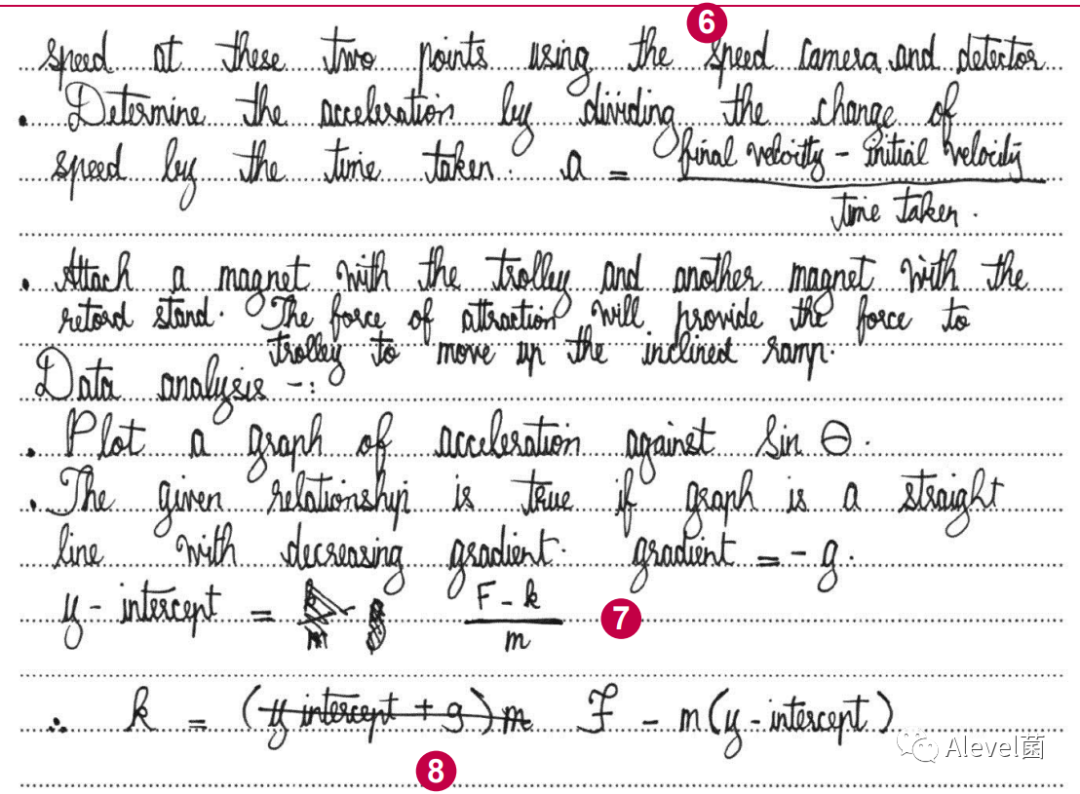 6
speed at these two points using the speed camera and detector
. Determine the acceleration by dividing the change of
speed by the time taken. a = final velocity - initial velocity
time taken.
. Attach a magnet with the trolley and another magnet with the
retord stand. The force of attraction will provide the force to
trolley to move up the inclined ramp.
Data analysis -:
. Plot a graph of acceleration against Sin θ.
. The given relationship is true if graph is a straight
line with decreasing gradient. gradient = - g.
y - intercept = F - k 7
m
∴ k = (y intercept + g) m F - m (y - intercept)
Alevel菌
8